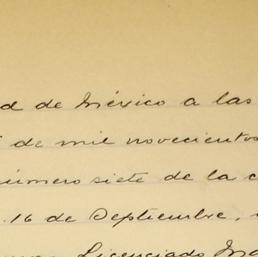 d de México a las
de mil novecientos
número siete de la c
16 de Septiembre,
Licenciado